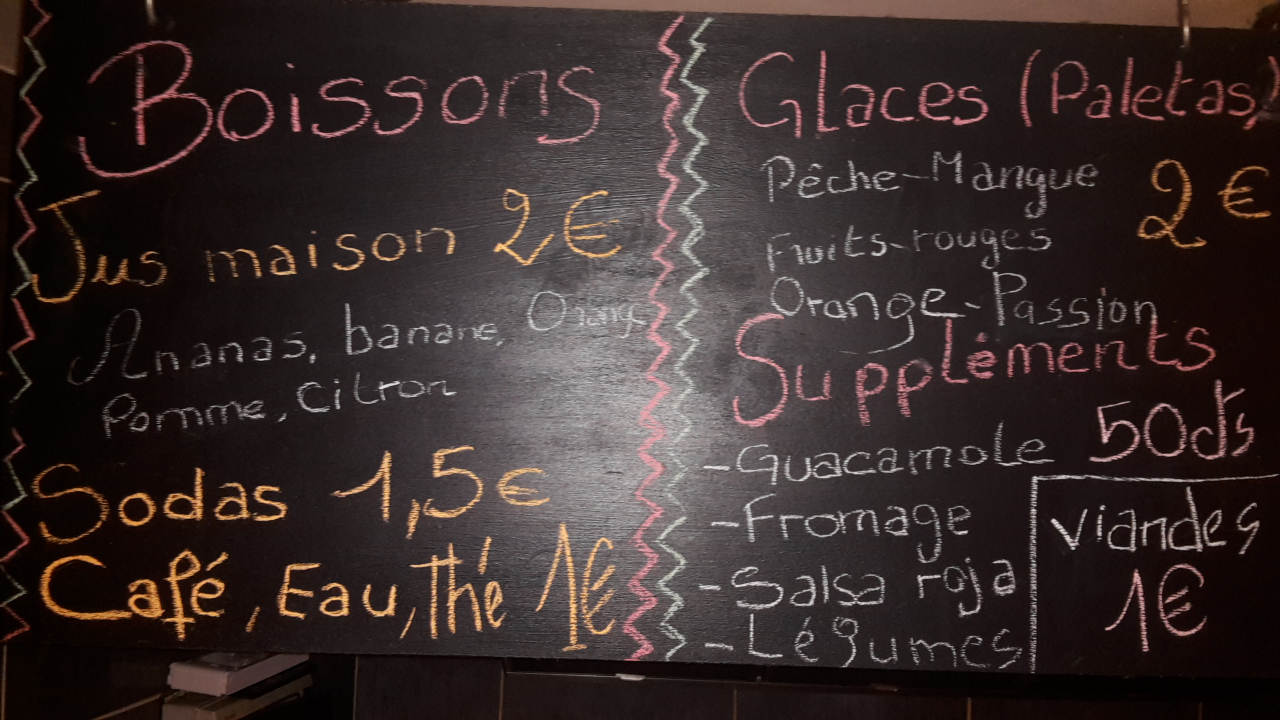 Boissons
Jus maison 2€
Ananas, banane, Orange
Pomme, citron
Sodas 1,5€
Café, Eau, Thé 1€
Glaces (Paletas)
Pêche-Mangue 2€
Fruits-rouges
Orange-Passion
Suppléments
-Guacamole 50cts
-Fromage
-Salsa roja
-Légumes
viandes
1€